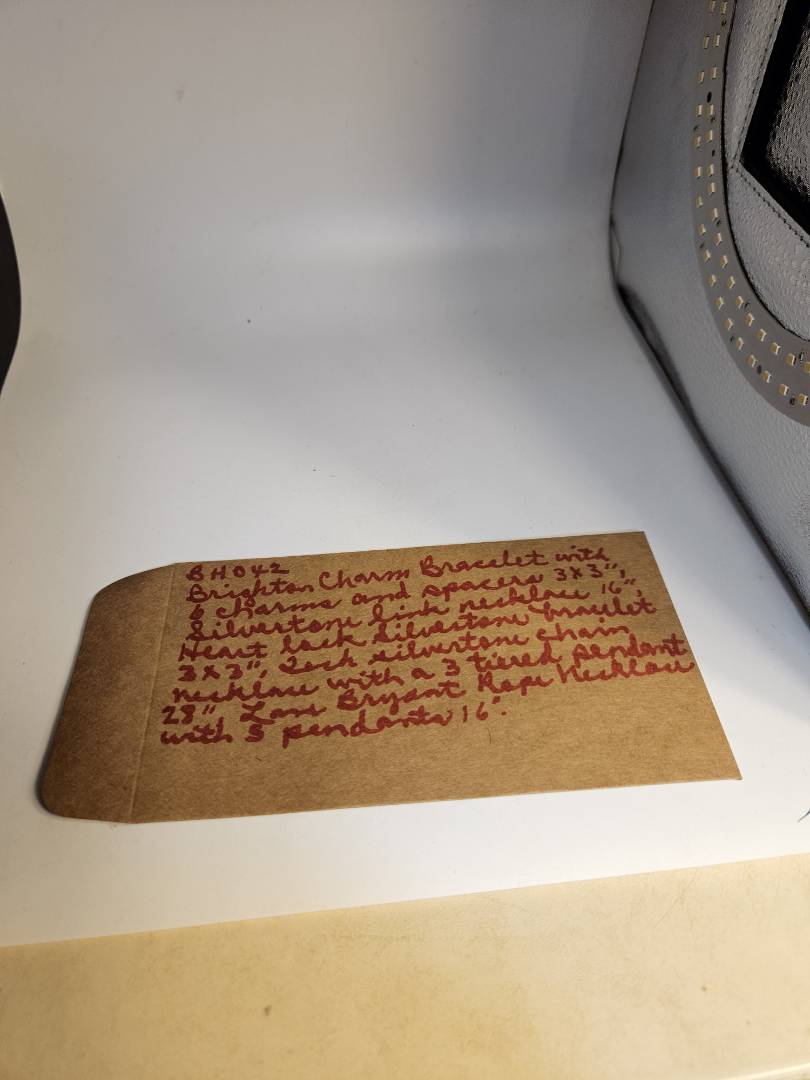 BH042
Brighton Charm Bracelet with
6 charms and spacers 3x3",
Silvertone link necklace 16",
Heart lock silvertone bracelet
3x3", silvertone chain
necklace with a 3 tiered pendant
28", Lane Bryant Rope Necklace
with 5 pendants 16".